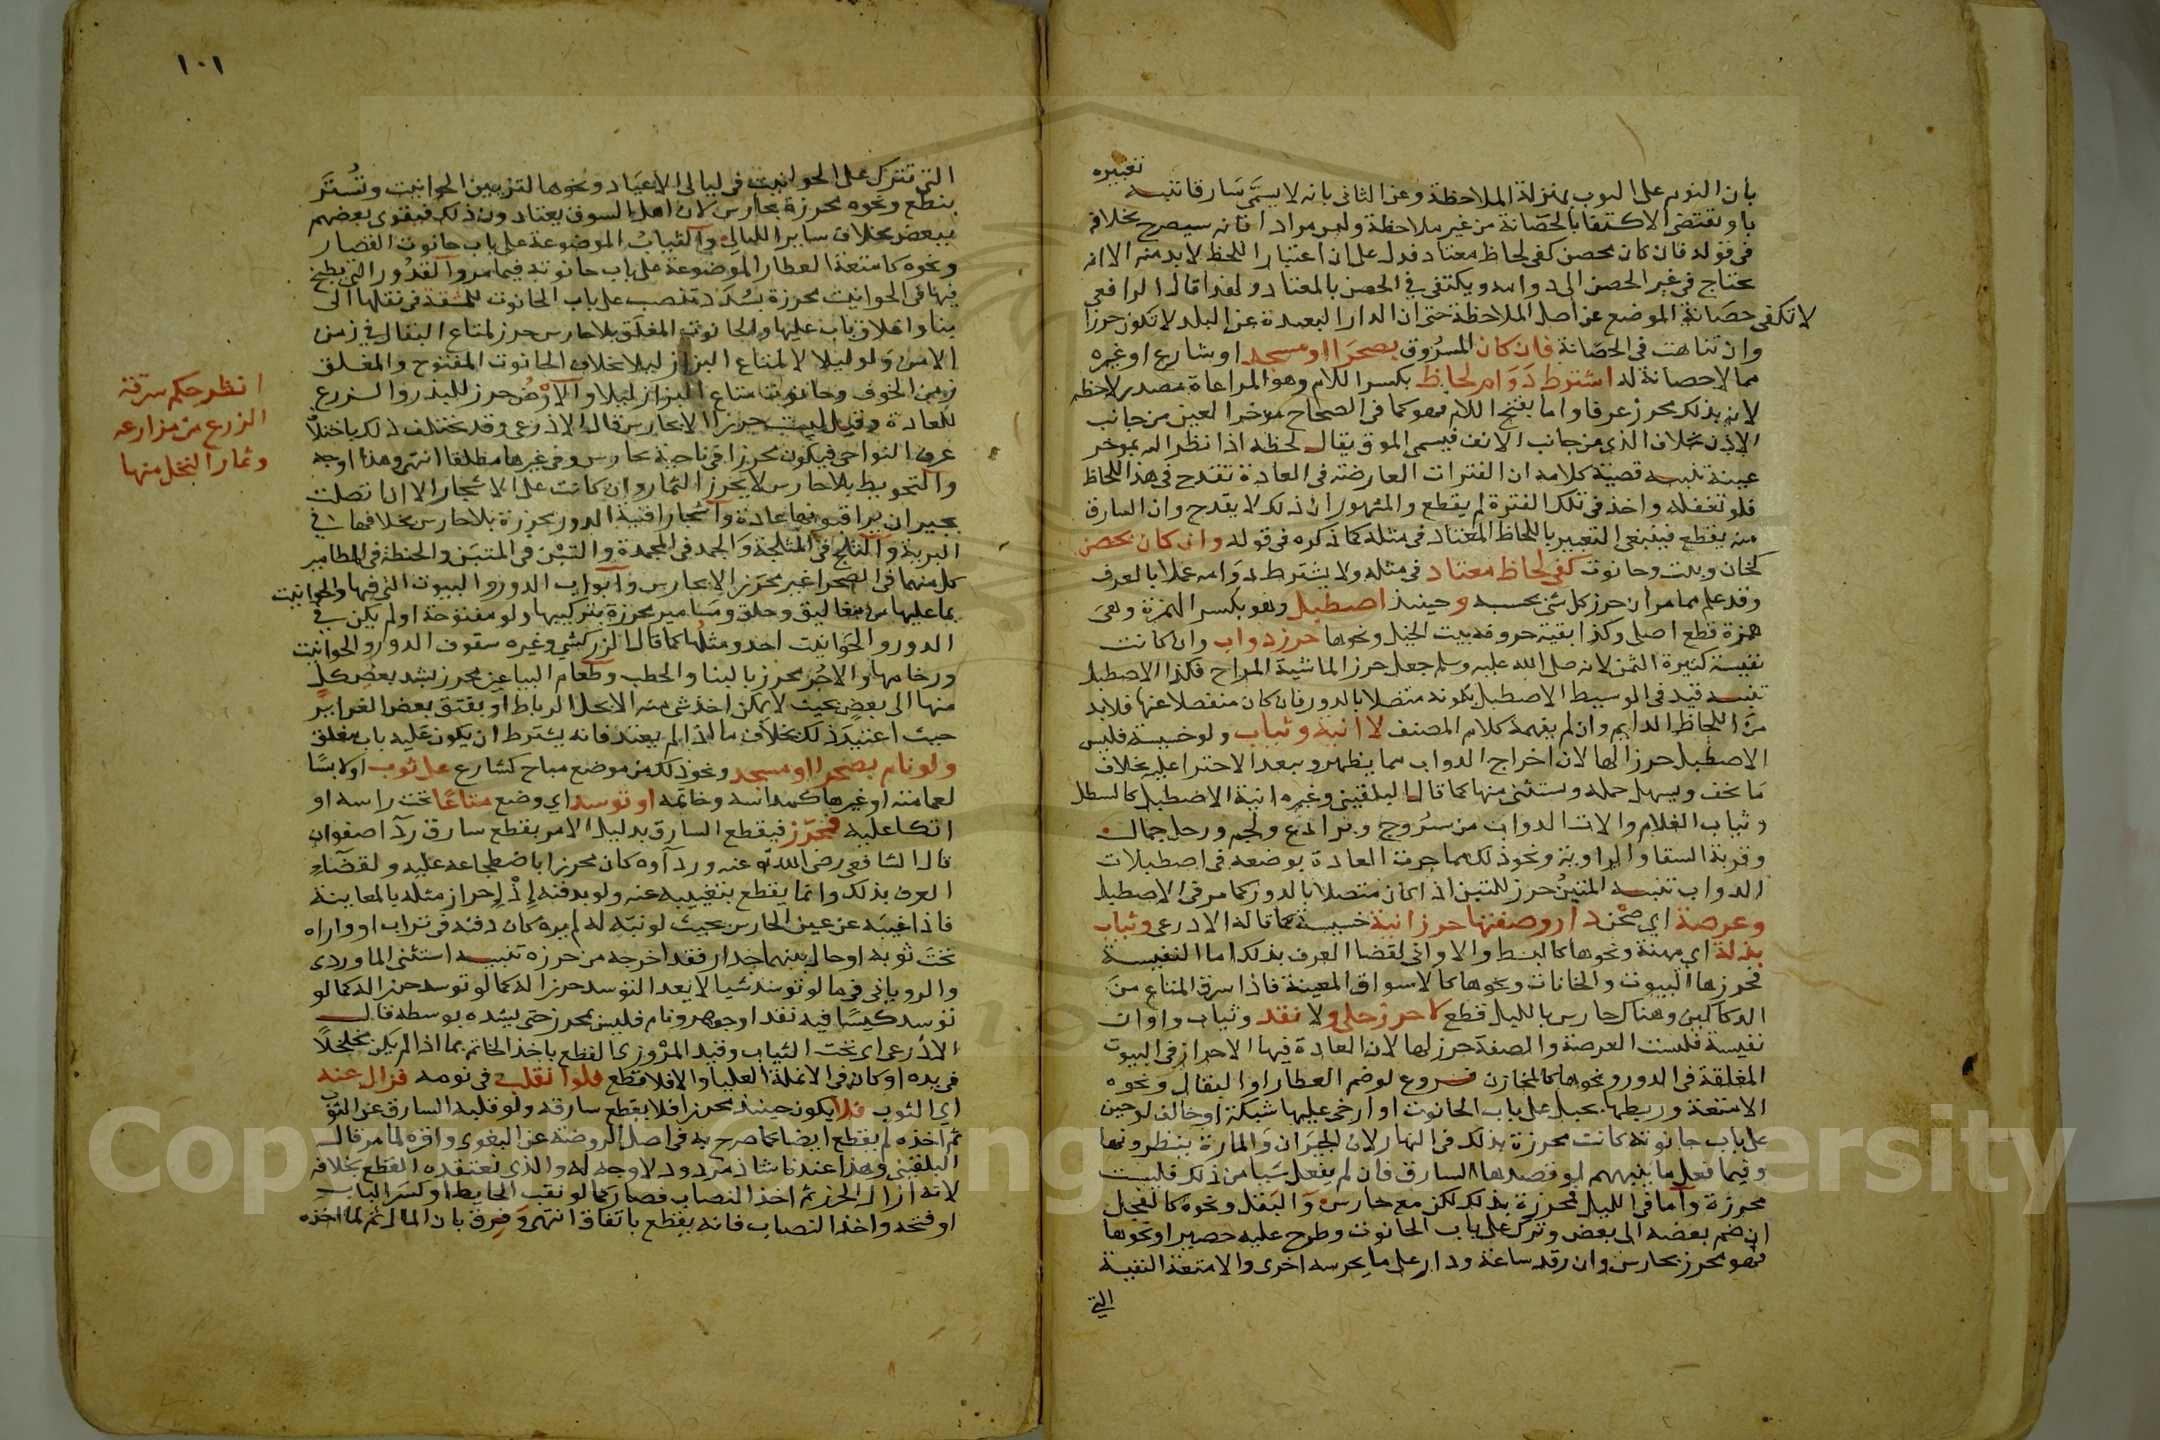 بأن النوم على الثوب بمنزلة الملاحظة وعن الثاني بأنه لا يسمى سارقا تنبيه تعبيره
باو يقتضي الاكتفا بالحصانة من غير ملاحظة وليس مراد ا فانه سيصرح بخلافه
في قوله فان كان بحصن كفى لحاظ معتاد فدل على ان اعتبار اللحظ لابد منه الا انه
يحتاج في غير الحصن الى دوامه ويكتفى في الحصن بالمعتاد ولهذا قال الرافعي
لا تكفي حصانة الموضع عن اصل الملاحظة حتى ان الدار البعيدة عن البلد لا تكون حرزا
وان تناهت في الحصانة فان كان المسروق بصحرا او مسجد او شارع او غيره
مما لا حصانة له اشترط دوام لحاظ بكسر اللام وهو المراعاة مصدر لاحظه
لانه بذلك محرز عرفا واما بفتح اللام فهو كما في الصحاح مؤخر العين من جانب
الاذن بخلاف الذي من جانب الانف فيسمى الموق يقال لحظه اذا نظر اليه بموخر
عينه تنبيه قضية كلامه ان الفترات العارضة في العادة تقدح في هذا اللحاظ
فلو تغفله واخذ في تلك الفترة لم يقطع والمشهور ان ذلك لا يقدح وان السارق
منه يقطع فينبغي التعبير باللحاظ المعتاد في مثله كما ذكره في قوله وان كان بحصن
كخان وبيت وحانوت كفى لحاظ معتاد في مثله ولا يشترط دوامه عملا بالعرف
وقد علم مما مر ان حرز كل شي بحسبه وحينئذ اصطبل وهو بكسر الهمزة وهي
همزة قطع اصلي وكذا بقية حروفه بيت الخيل ونحوها حرز دواب وان كانت
نفيسة كثيرة الثمن لانه صلى الله عليه وسلم جعل حرز الماشية المراح فكذا الاصطبل
تنبيه قيد في الوسيط الاصطبل بكونه متصلا بالدور فان كان منفصلا عنها فلابد
من اللحاظ الدايم وان لم يفهمه كلام المصنف لا انية وثياب ولو خسيسة فليس
الاصطبل حرزا لها لان اخراج الدواب مما يظهر ويبعد الاجترا عليه بخلاف
ما يخف ويسهل حمله ويستثنى منها كما قال البلقيني وغيره انية الاصطبل كالسطل
وثياب الغلام والات الدواب من سروج وبراذع ولجم ورحل جمال
وقربة السقا والراوية ونحو ذلك مما جرت العادة بوضعه في اصطبلات
الدواب تنبيه المتبن حرز للتبن اذا كان متصلا بالدور كما مر في الاصطبل
وعرصة اي صحن دار وصفتها حرز انية خسيسة كما قاله الاذرعي وثياب
بذلة اي مهنة ونحوها كالبسط والاواني لقضا العرف بذلك اما النفيسة
فحرزها البيوت والخانات ونحوها كالاسواق المعينة فاذا سرق المتاع من
الدكاكين وهناك حارس بالليل قطع لا حرز حلي ولا نقد وثياب واوان
نفيسة فليست العرصة والصفة حرز لها لان العادة فيها الاحراز في البيوت
المغلقة في الدور ونحوها كالمخازن فروع لو ضم العطار او البقال ونحوه
الامتعة وربطها بحبل على باب الحانوت او ارخى عليها شبكة او خالف لوحين
على باب حانوته كانت محرزة بذلك في النهار لان الجيران والمارة ينظرونها
وفيما فعل ما ينبههم لو قصدها السارق فان لم يفعل شيا من ذلك فليست
محرزة واما في الليل فمحرزة بذلك لكن مع حارس والبقل ونحوه كالفجل
ان ضم بعضه الى بعض وترك على باب الحانوت وطرح عليه حصير او نحوها
فهو محرز بحارس وان رقد ساعة ودار على ما يحرسه اخرى والامتعة النفيسة
التي
١٠١
التي تترك على الحوانيت في ليالي الاعياد ونحوها لتزيين الحوانيت وتستر
بنطع ونحوه محرزة بحارس لان اهل السوق يعتادون ذلك فيقوى بعضهم
ببعض بخلاف ساير الليالي والثياب الموضوعة على باب حانوت القصار
ونحوه كامتعة العطار الموضوعة على باب حانوته فيما مر والقدور التي يطبخ
فيها في الحوانيت محرزة بسدد تنصب على باب الحانوت للمشقة في نقلها الى
بنا واغلاق باب عليها والحانوت المغلق بلا حارس حرز لمتاع البقال في زمن
الامن ولو ليلا لا لمتاع البزاز ليلا بخلاف الحانوت المفتوح والمغلق
زمن الخوف وحانوت متاع البزاز ليلا والارض حرز للبذر والزرع
للعادة وقيل ليست حرزا الا بحارس قال الاذرعي وقد يختلف ذلك باختلاف
عرف النواحي فيكون محرزا في ناحية بحارس وفي غيرها مطلقا انتهى وهذا اوجه
والتحويط بلا حارس لا يحرز الثمار وان كانت على الاشجار الا ان اتصلت
بجيران يراقبونها عادة واشجار افنية الدور محرزة بلا حارس بخلافها في
البرية والثلج في المثلجة والجمد في المجمدة والتبن في المتبن والحنطة في المطامير
كل منهما في الصحرا غير محرز الا بحارس وابواب الدور والبيوت التي فيها والحوانيت
بما عليها من مغاليق وحلق ومسامير محرزة بتركيبها ولو مفتوحة او لم يكن في
الدور والحوانيت احد ومثلها كما قال الزركشي وغيره سقوف الدور والحوانيت
ورخامها والاجر محرز بالبنا والحطب وطعام البياعين محرز بشد بعض كل
منها الى بعض بحيث لا يمكن اخذ شي منه الا بحل الرباط او بفتق بعض الغراير
حيث اعتيد ذلك بخلاف ما اذا لم يعتد فانه يشترط ان يكون عليه باب مغلق
ولو نام بصحرا او مسجد ونحو ذلك من موضع مباح كشارع على ثوب او لابسا
لعمامته او غيرها كمداسه وخاتمه او توسد اي وضع متاعا تحت راسه او
اتكا عليه فمحرز فيقطع السارق بدليل الامر بقطع سارق ردا صفوان
قال الشافعي رضي الله عنه ورداوه كان محرزا باضطجاعه عليه ولقضاء
العرف بذلك وانما يقطع بتغييبه عنه ولو بدفنه اذ احراز مثله بالمعاينة
فاذا غيبه عن عين الحارس بحيث لو نبه له لم يره كان دفنه في تراب او واراه
تحت ثوبه او حال بينهما جدار فقد اخرجه من حرزه تنبيه استثنى الماوردي
والروياني فيما لو توسد شيا لا يعد التوسد حرزا له كما لو توسد حرزا له كما لو
توسد كيسا فيه نقد او جوهر ونام فليس محرز حتى يشده بوسطه قال
الاذرعي اي تحت الثياب وقيد المروزي القطع باخذ الخاتم بما اذا لم يكن مخلخلا
في يده او كان في الانملة العليا والا فلا قطع فلو انقلب في نومه فزال عنه
اي الثوب فلا يكون حينئذ محرزا فلا يقطع سارقه ولو قلبه السارق عن الثوب
ثم اخذه لم يقطع ايضا كما صرح به في اصل الروضة عن البغوي واقره لما مر قال
البلقيني وهذا عندنا شاذ مردود لا وجه له والذي نعتقده القطع بخلافه
لانه ازال الحرز ثم اخذ النصاب فصار كما لو نقب الحايط او كسر الباب
او فتحه واخذ النصاب فانه يقطع باتفاق انتهى وفرق بان المال ثم لما اخذه
انظر حكم سرقة
الزرع من مزارعه
وثمار النخل منها